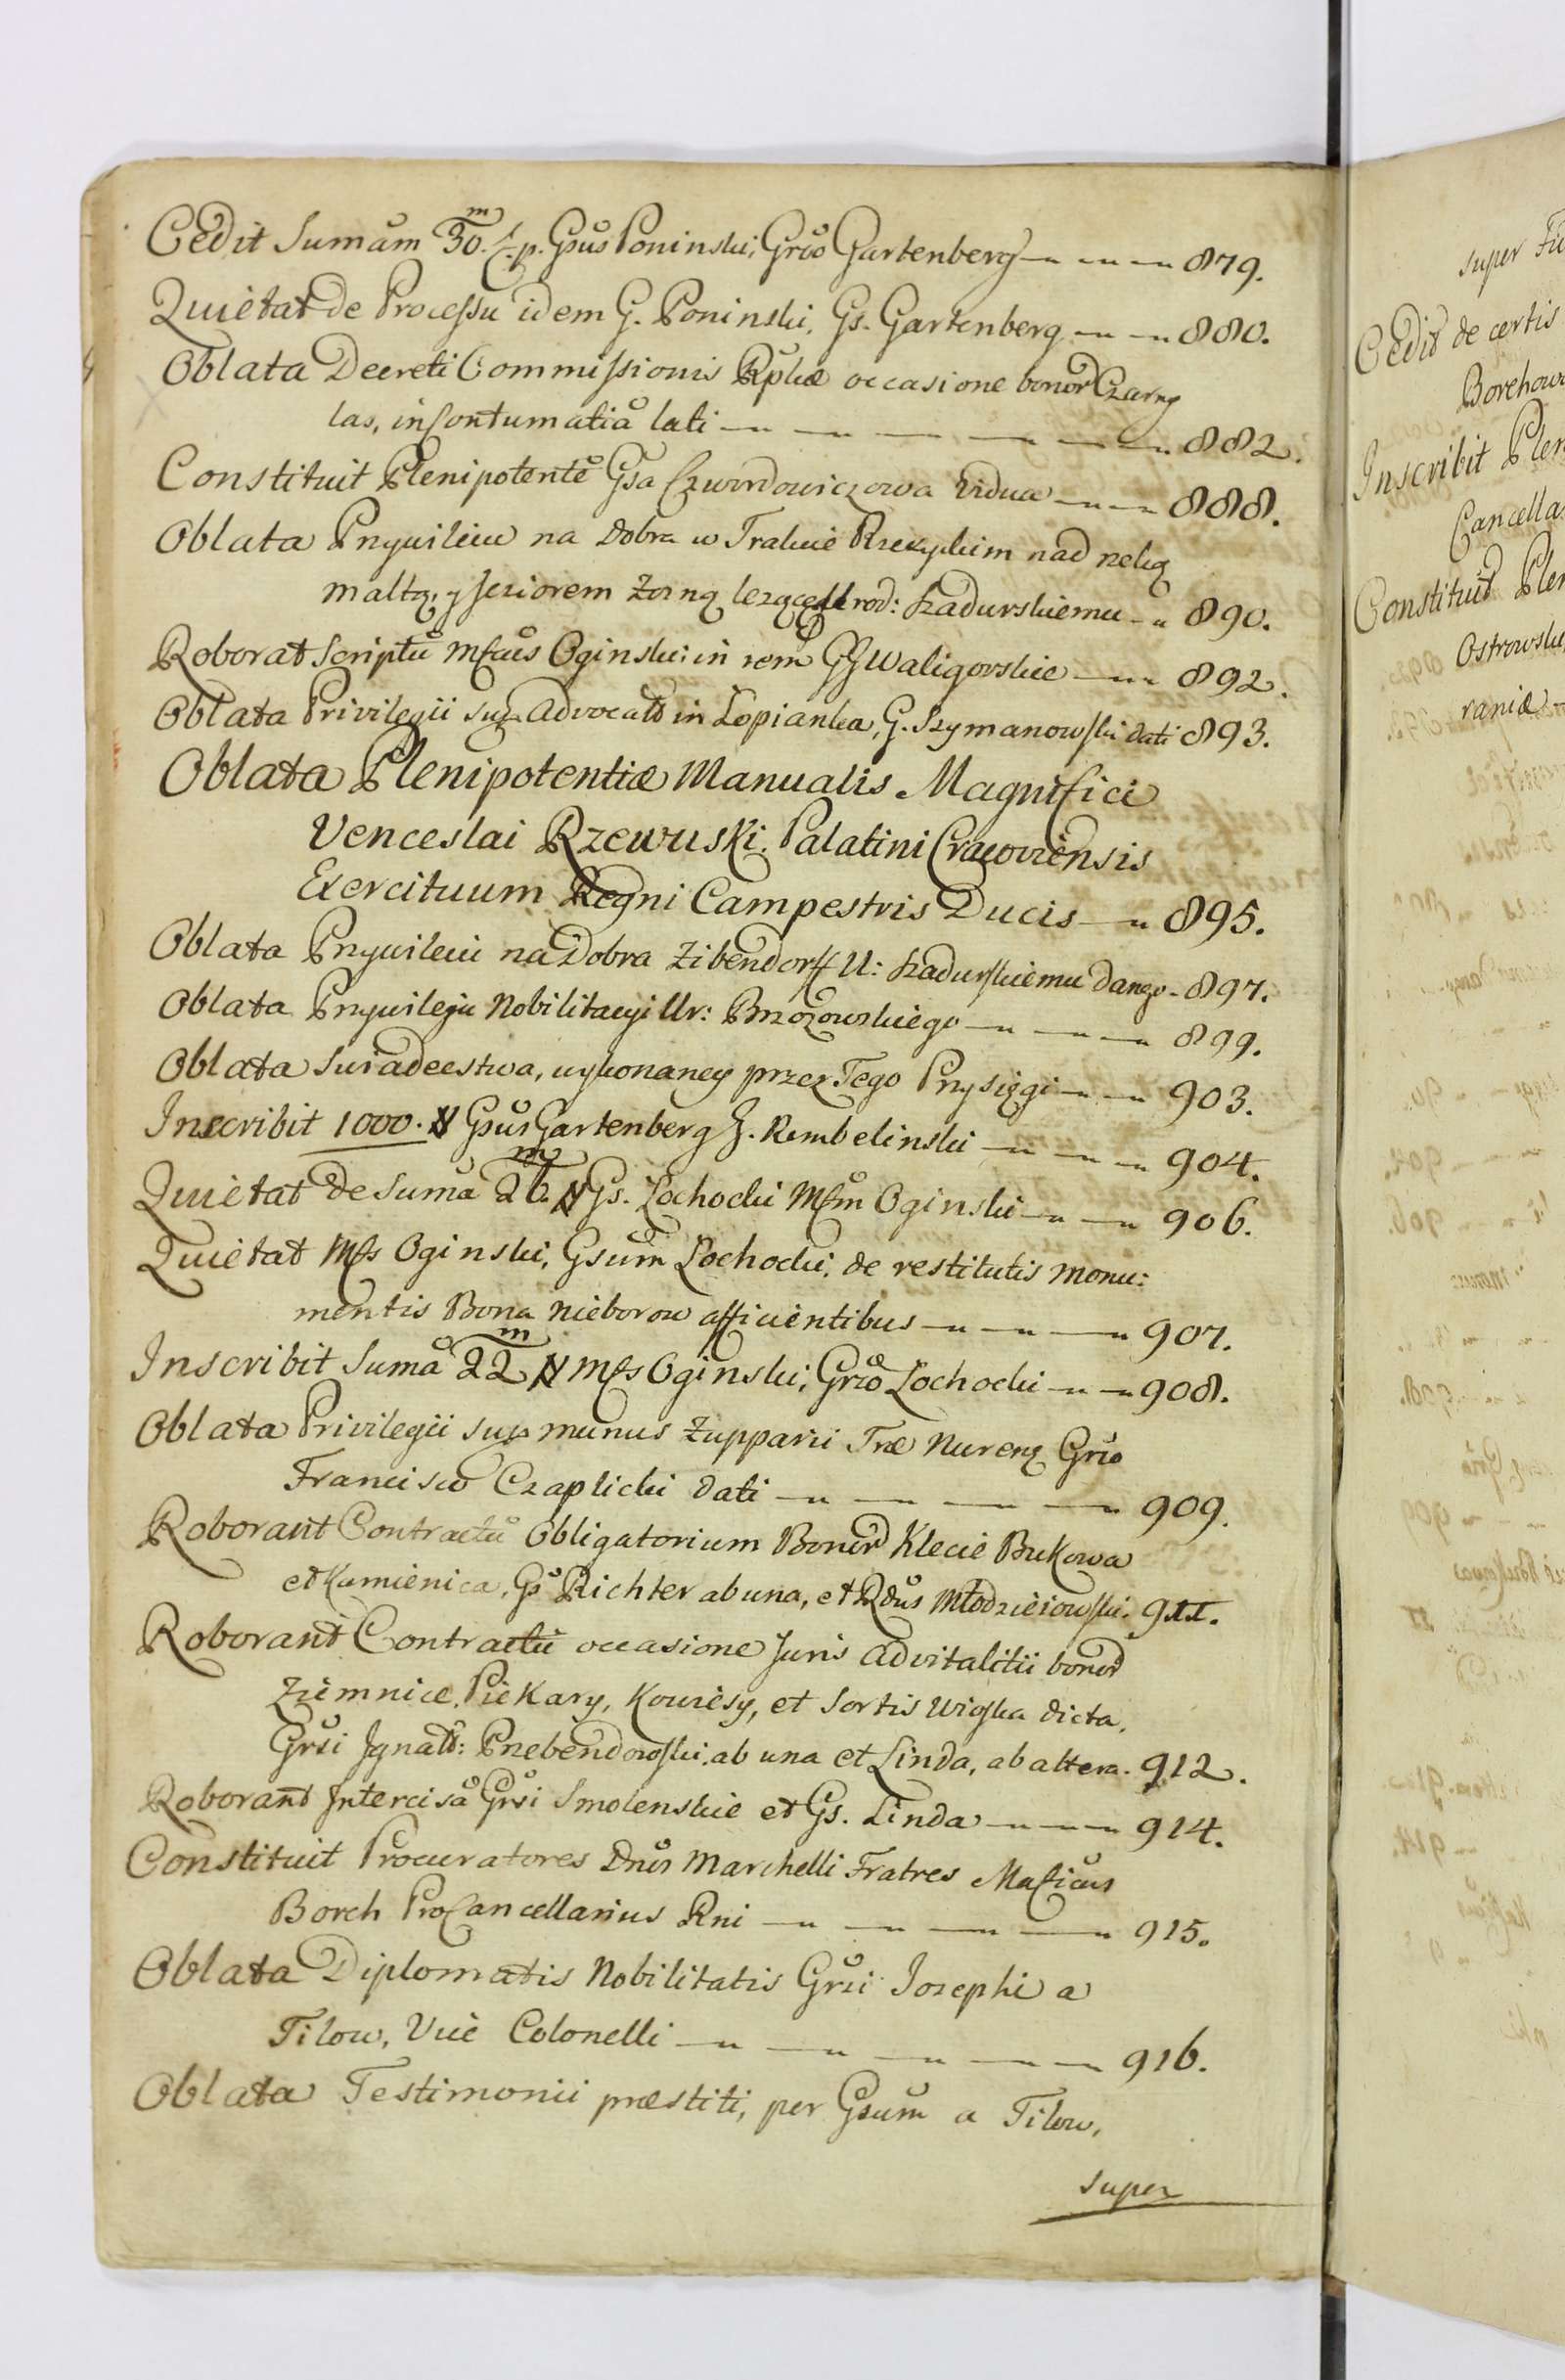 Cedit Sumam 30.m f. p. Gsus Poninski, Grso Gartenberg 879.
Quietat de Processu idem G. Poninski, Gs. Gartenberg 880.
Oblata Decreti Commissionis Rplcæ occasione bonor Czarny
las, in Contumatia lati 882.
Constituit Plenipotente Gsa Czwordowiczowa Vidua 888.
Oblata Przywileiu na Dobra w Trakcie Rzeczyckim nad rzeką
maltą, y Jeziorem Zorną leżące Urod: Szadurskiemu 890.
Roborat Scriptu Mfcus Oginski in rem GG Waligorskie 892.
Oblata Privilegii sup Advocatd in Lopianka, G. Szymanowski dati 893.
Oblata Plenipotentiæ Manualis Magnifici
Venceslai Rzewuski Palatini Cracoviensis
Exercituum Regni Campestris Ducis 895.
Oblata Przywileiu na Dobra Zibendorff U: Szadurskiemu danego 897.
Oblata Przywileju Nobilitacyi Ur: Brzozowskiego 899.
Oblata Swiadectwa, wykonaney przez Tego Przysięgi 903.
Inscribit 1000. # Gsus Gartenberg G. Rembelinski 904.
Quietat de Suma 26.m # Gs. Lochocki Mfm Oginski 906.
Quietat Mfs Oginski, Gsum Lochocki, de restitutis monu:
mentis Bona Nieborow afficientibus 907.
Inscribit Suma 22m # Mfs Oginski, Grso Lochocki 908.
Oblata Privilegii sup munus Zupparii Træ Nurens Grso
Francisco Czaplicki dati 909.
Roborant Contractu Obligatorium Bonor Klecie Bukowa
et Kamienica, Gs Richter ab una, et Rdus Młodzieiowski. 911.
Roborant Contractu occasione Juris advitalitii bonor
Ziemnice, Piekary, Kowiesy, et Sortis Wioska dicta,
Grsi Ignatt: Przebendowski, ab una et Linda, ab altera. 912.
Roborant Intercisa Grsi Smolenskie et Gs. Linda 914.
Constituit Procuratores Dnos Marchelli Fratres Mafficus
Borch ProCancellarius Rni 915.
Oblata Diplomatis Nobilitatis Grsi Josephi a
Tilow, Vice Colonelli 916.
Oblata Testimonii præstiti, per Gsum a Tilow,
super
super
Cedit de certis
Inscribit Plen
Cancella
Constituit Plen
Ostrowski
raniæ